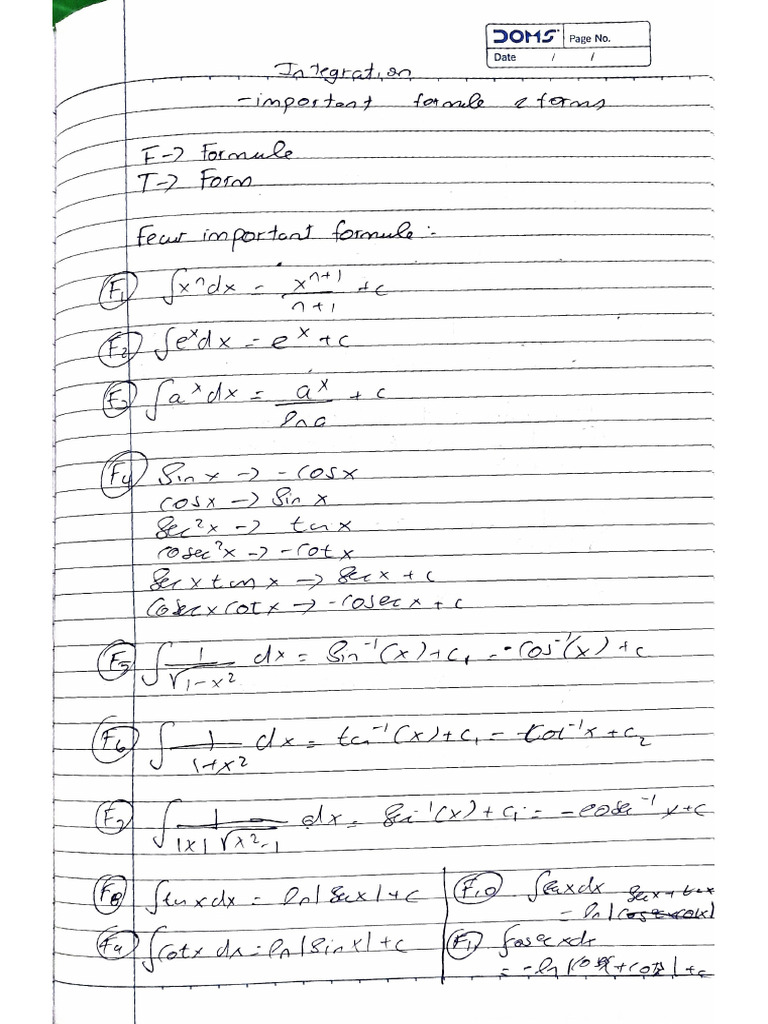 DOMS Page No.
Date / /
Integration
- important formule & forms
F -> Formule
T -> Form
Few important formule :-
F1 ∫x^n dx = x^(n+1)/(n+1) + c
F2 ∫e^x dx = e^x + c
F3 ∫a^x dx = a^x/ln a + c
F4 Sin x -> - cos x
cos x -> Sin x
Sec²x -> tan x
cosec²x -> -cot x
Sec x tan x -> Sec x + c
Cosec x cot x -> -cosec x + c
F5 ∫ 1/√(1-x²) dx = Sin⁻¹(x) + c₁ = -cos⁻¹(x) + c
F6 ∫ 1/(1+x²) dx = tan⁻¹(x) + c₁ = - cot⁻¹x + c₂
F7 ∫ 1/(|x| √(x²-1)) dx = Sec⁻¹(x) + c₁ = -cosec⁻¹ x + c
F8 ∫tan x dx = ln|Sec x| + c
F9 ∫cot x dx = ln|Sin x| + c
F10 ∫Sec x dx
= ln| Sec x + tan x |
F11 ∫cosec x dx
= -ln|cosec x + cot x| + c